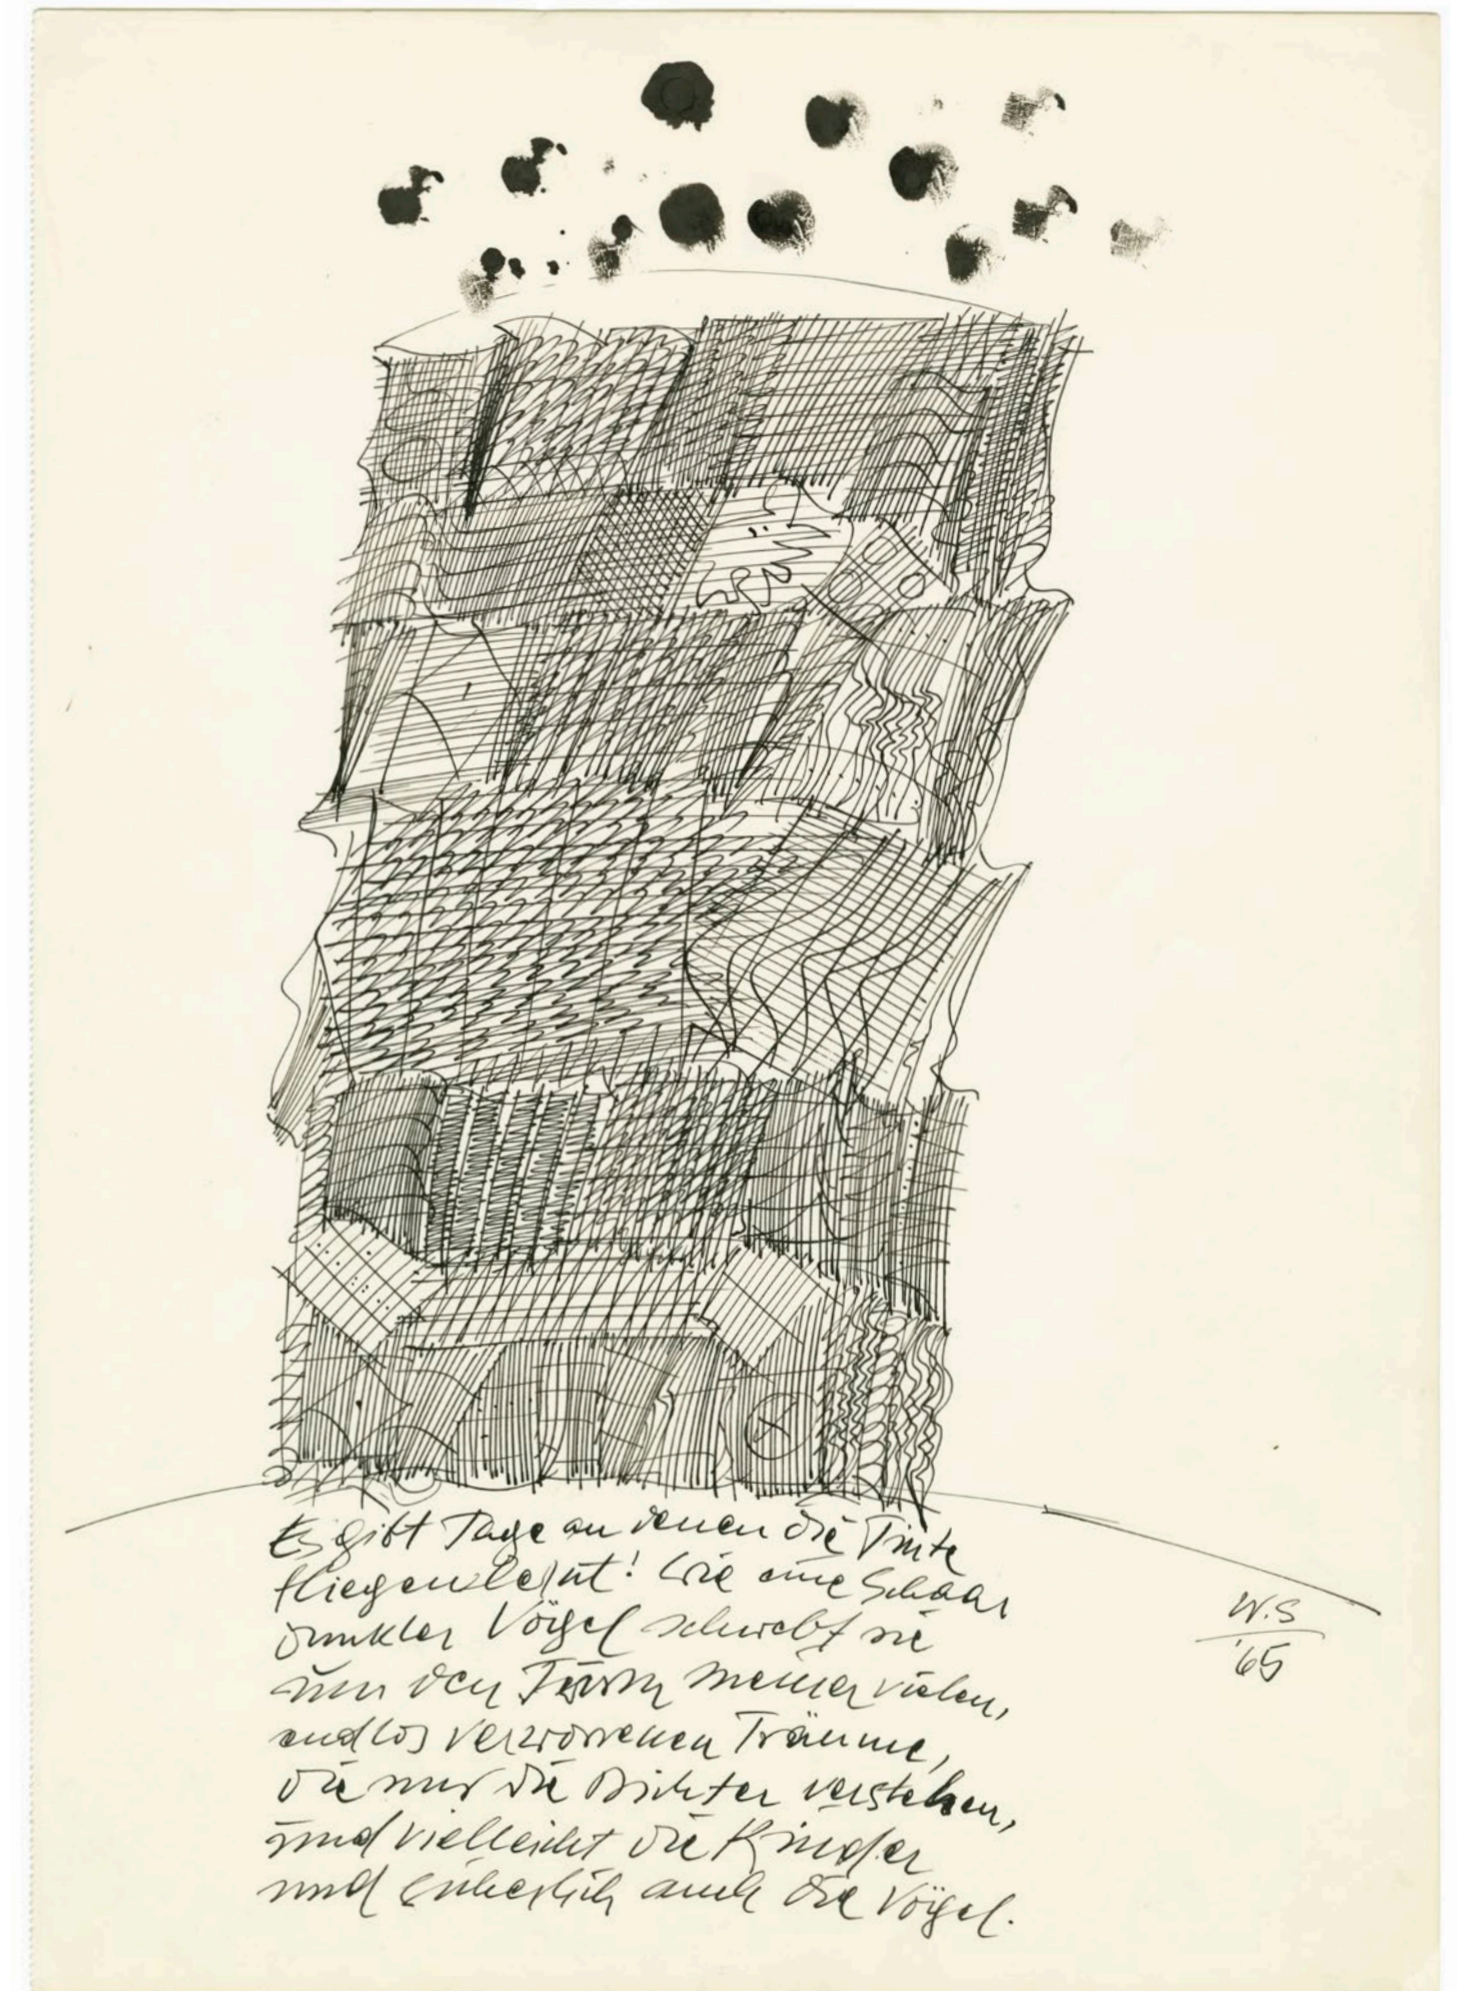 Es gibt Tage an denen die Tinte
fliegen lernt! Wie eine Schaar
dunkler Vögel schwebt sie
um den Turm meiner vielen,
endlos verworrenen Träume,
die nur die Dichter verstehen,
und vielleicht die Kinder
und sicherlich auch die Vögel.
W.S
'65